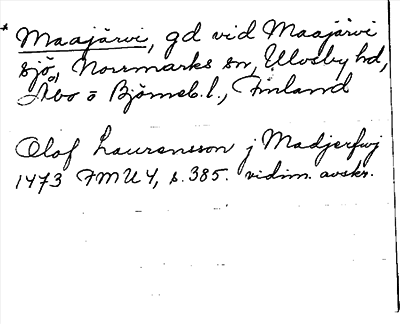 * Maajärvi, gd vid Maajärvi
sjö, Norrmarks sn, Ulvsby hd,
Åbo o Björneb. l., Finland
Olof Laurensson j Madjerfwj
1473 FMU 4, s. 385. vidim. avskr.